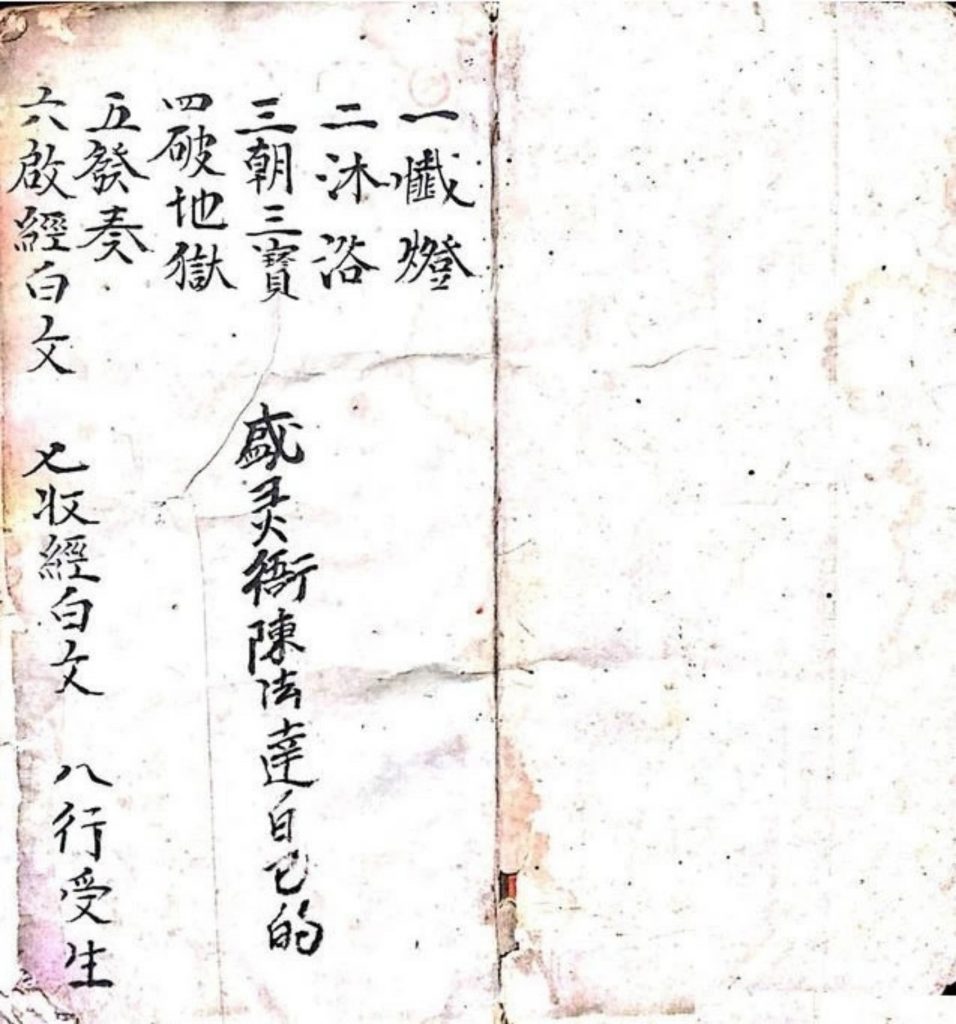 一懺燈
二沐浴
三朝三寶
四破地獄
五發奏
六啟經白文
七收經白文
八行受生
盛灵衙陳法達自己的